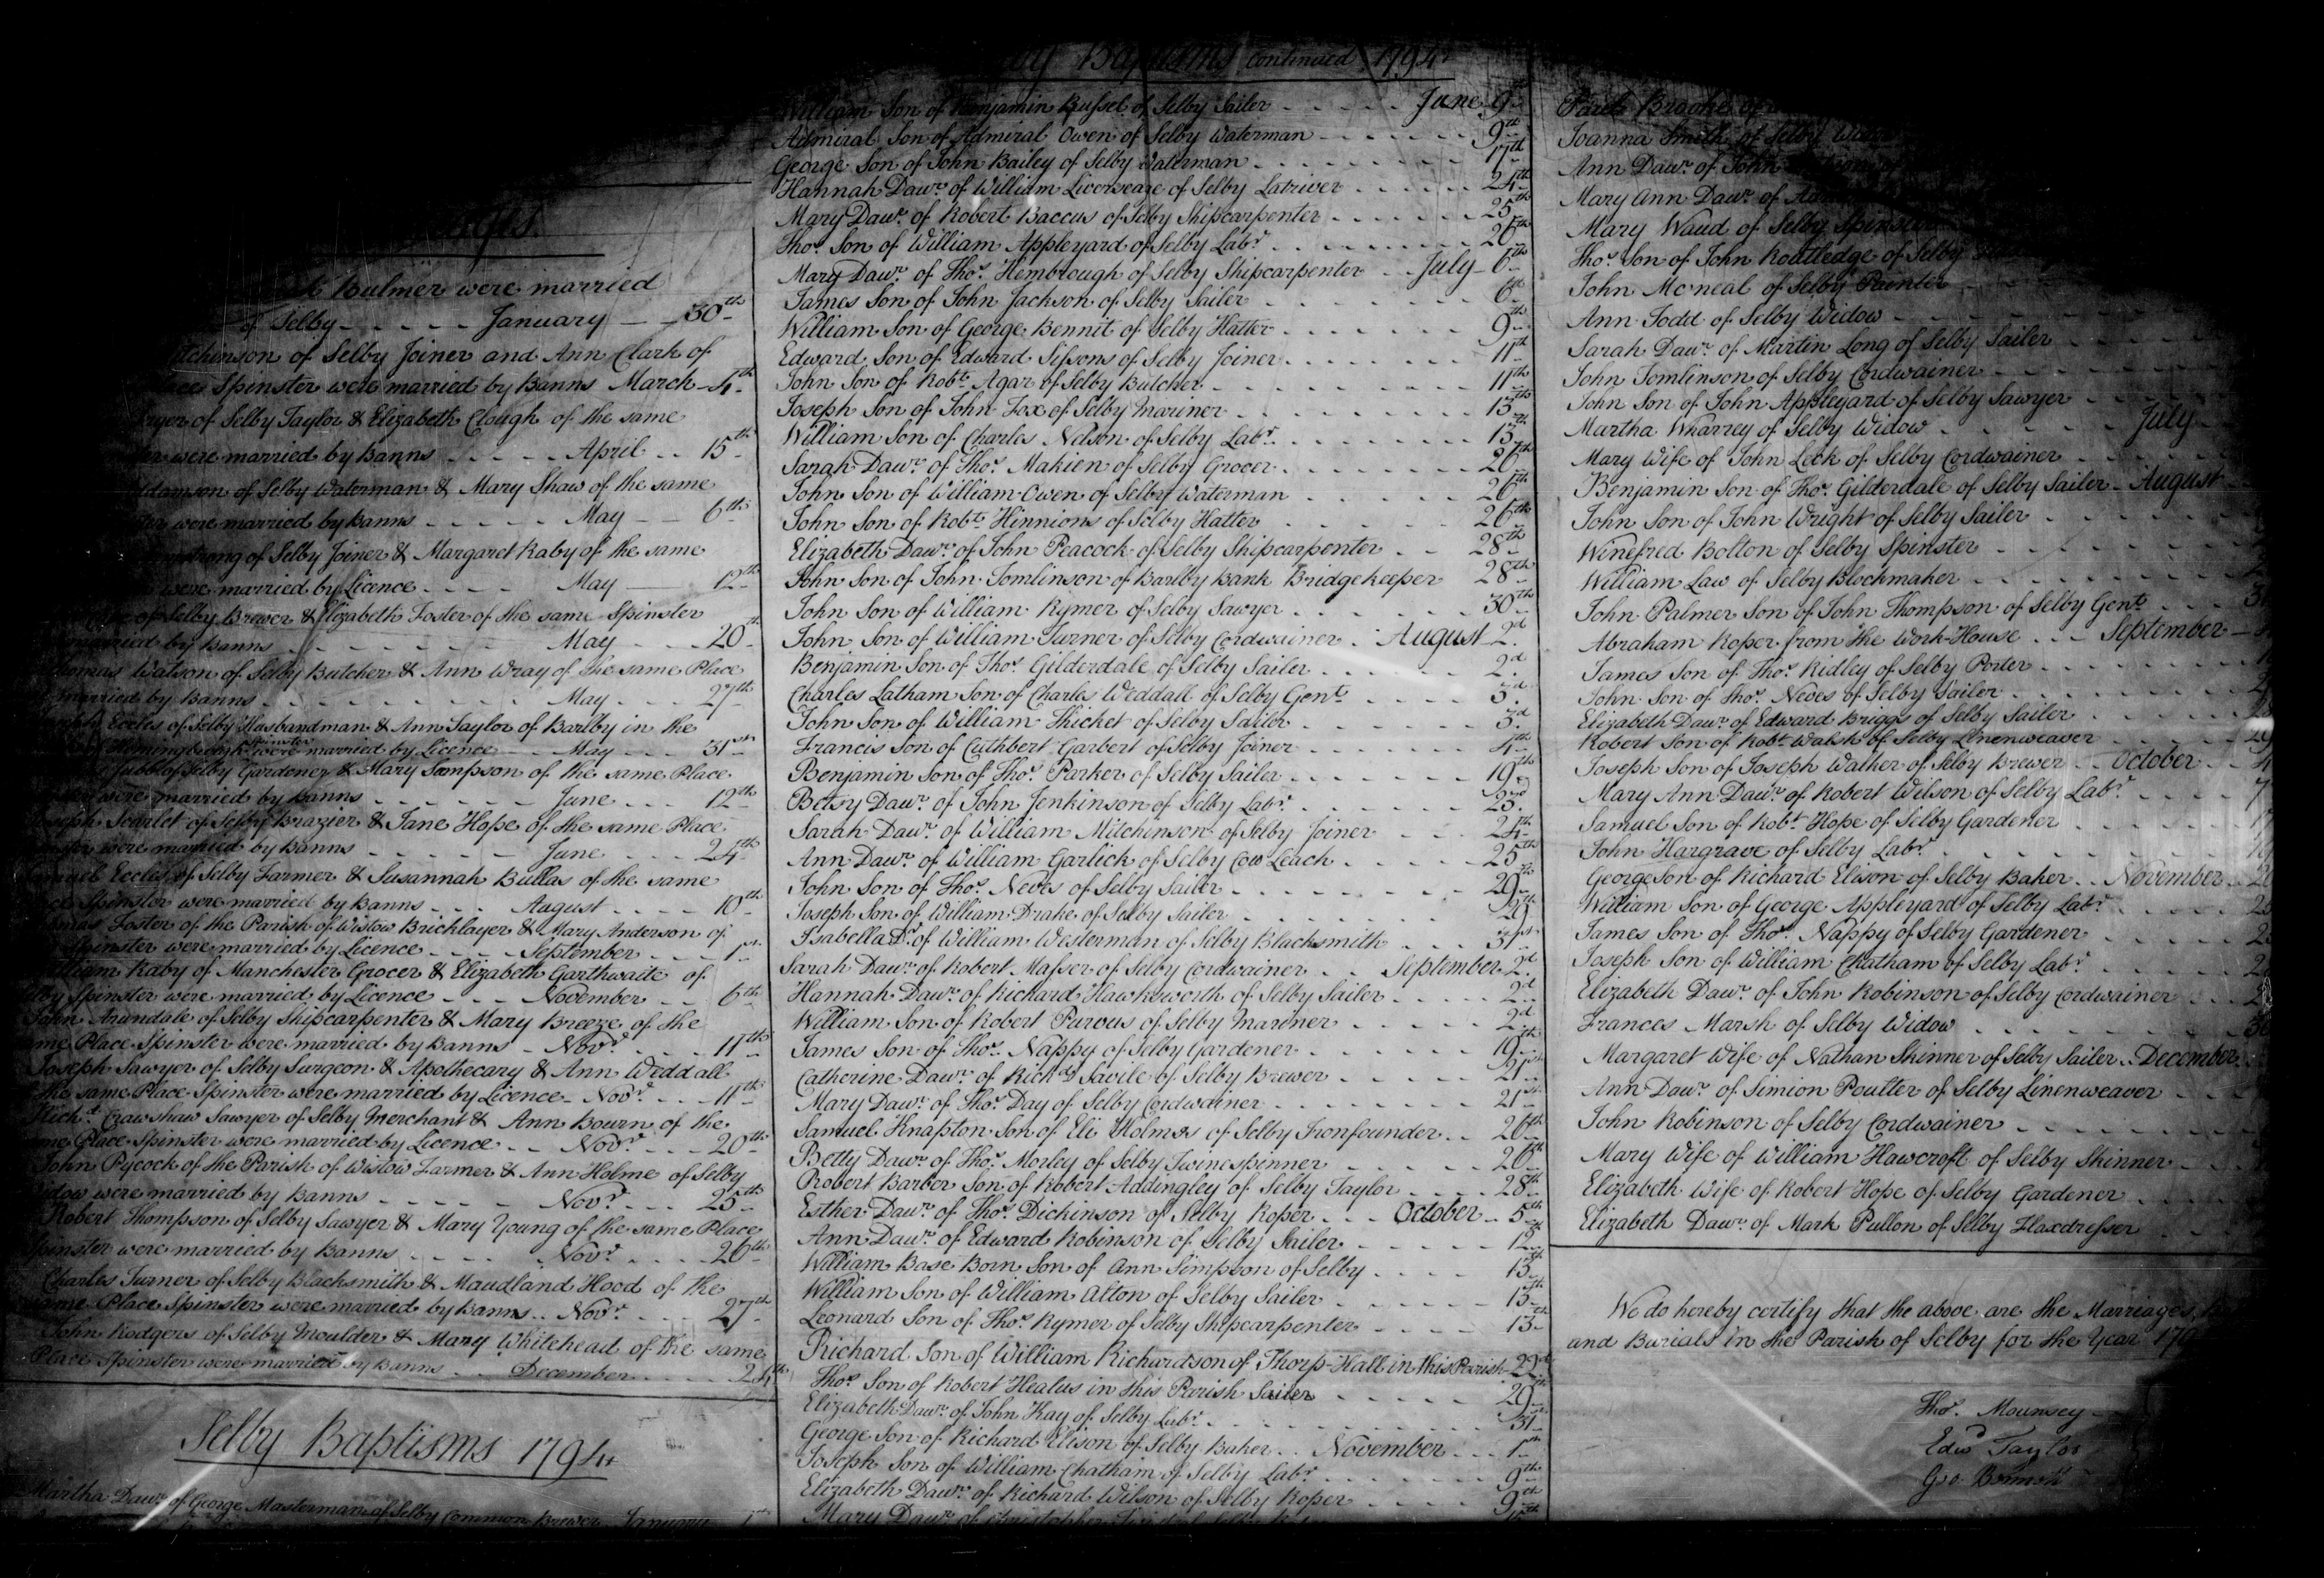 Bulmer were married
of Selby - - - - - January - - 30th
of Selby Joiner and Ann Clark of
Spinster were married by Banns March - 4th
of Selby Taylor & Elizabeth Clough of the same
were married by Banns - - - - - April - - 15th
of Selby Waterman & Mary Shaw of the same
were married by Banns - - - - - May - - 6th
of Selby Joiner & Margaret Raby of the same
were married by Licence - - - - May - - 12th
of Selby Brewer & Elizabeth Foster of the same Spinster
married by Banns - - - - - - May - - - 20th
Thomas Watson of Selby Butcher & Ann Wray of the same Place
married by Banns - - - - - - May - - - 27th
Eccles of Selby Husbandman & Ann Taylor of Barlby in the
Hemingbrough Spinster were married by Licence - - May - - - 31st
of Selby Gardener & Mary Sampson of the same Place
were married by Banns - - - - - June - - - 12th
Joseph Scarlet of Selby Brazier & Jane Hope of the same Place
were married by Banns - - - - - June - - - 24th
Eccles of Selby Farmer & Susannah Bullas of the same
Spinster were married by Banns - - - August - - - - 10th
Foster of the Parish of Wistow Bricklayer & Mary Anderson of
Spinster were married by Licence - - - - September - - - 1st
William Raby of Manchester Grocer & Elizabeth Garthwaite of
Selby Spinster were married by Licence - - - November - - 6th
John Arundale of Selby Shipcarpenter & Mary Breeze of the
same Place Spinster were married by Banns - Novr. - - - 11th
Joseph Sawyer of Selby Surgeon & Apothecary & Ann Weddall
the same Place Spinster were married by Licence - Novr. - - - 11th
Richd. Crawshaw Sawyer of Selby Merchant & Ann Bourn of the
same Place Spinster were married by Licence - - Novr. - - - 20th
John Pycock of the Parish of Wistow Farmer & Ann Holme of Selby
Widow were married by Banns - - - - - Novr. - - - 25th
Robert Thompson of Selby Sawyer & Mary Young of the same Place
Spinster were married by Banns - - - - - Novr. - - - 26th
Charles Turner of Selby Blacksmith & Maudland Hood of the
same Place Spinster were married by Banns - - Novr. - - - 27th
John Rodgers of Selby Moulder & Mary Whitehead of the same
Place Spinster were married by Banns - - - December - - - - 24th
Selby Baptisms 1794
Martha Dawr. of George Masterman of Selby Common Brewer January 1st
Baptisms continued 1794
William Son of Benjamin Russel of Selby Sailer - - - - - June 9th
Admiral Son of Admiral Owen of Selby Waterman - - - - - - 9th
George Son of John Bailey of Selby Waterman - - - - - - - 17th
Hannah Dawr. of William Liverseage of Selby Latriver - - - - - - 24th
Mary Dawr. of Robert Baccus of Selby Shipcarpenter - - - - - - 25th
Thos. Son of William Appleyard of Selby Labr. - - - - - - - 26th
Mary Dawr. of Thos. Hembrough of Selby Shipcarpenter - - July - 6th
James Son of John Jackson of Selby Sailer - - - - - - - 6th
William Son of George Bennit of Selby Hatter - - - - - - - 9th
Edward Son of Edward Sissons of Selby Joiner - - - - - - - 11th
John Son of Robt. Agar of Selby Butcher - - - - - - - - 11th
Joseph Son of John Fox of Selby Mariner - - - - - - - - 13th
William Son of Charles Nelson of Selby Labr. - - - - - - - 13th
Sarah Dawr. of Thos. Makien of Selby Grocer - - - - - - - 20th
John Son of William Owen of Selby Waterman - - - - - - 26th
John Son of Robt. Hinnions of Selby Hatter - - - - - - 26th
Elizabeth Dawr. of John Peacock of Selby Shipcarpenter - - 28th
John Son of John Tomlinson of Barlby Bank Bridgekeeper 28th
John Son of William Rymer of Selby Sawyer - - - - - - - 30th
John Son of William Turner of Selby Cordwainer - August - 2d
Benjamin Son of Thos. Gilderdale of Selby Sailer - - - - - - 2d
Charles Latham Son of Charles Weddall of Selby Gent. - - - - - 3d
John Son of William Thicket of Selby Sailer - - - - - - - 3d
Francis Son of Cuthbert Garbert of Selby Joiner - - - - - - - 4th
Benjamin Son of Thos. Parker of Selby Sailer - - - - - - - 19th
Betsy Dawr. of John Jenkinson of Selby Labr. - - - - - - - 23d
Sarah Dawr. of William Mitchinson of Selby Joiner - - - - 24th
Ann Dawr. of William Garlick of Selby Cow Leach - - - - - 25th
John Son of Thos. Neves of Selby Sailer - - - - - - - - 29th
Joseph Son of William Drake of Selby Sailer - - - - - - - 29th
Isabella Dr. of William Westerman of Selby Blacksmith - - - 31st
Sarah Dawr. of Robert Masser of Selby Cordwainer - - September 2d
Hannah Dawr. of Richard Hawksworth of Selby Sailer - - - - - 2d
William Son of Robert Purvus of Selby Mariner - - - - - - 2d
James Son of Thos. Nappy of Selby Gardener - - - - - - - 19th
Catherine Dawr. of Richd. Savile of Selby Brewer - - - - - - 21st
Mary Dawr. of Thos. Day of Selby Cordwainer - - - - - - - 21st
Samuel Knapton Son of Eli Holmes of Selby Ironfounder - - 26th
Betty Dawr. of Thos. Morley of Selby Twinespinner - - - - - 26th
Robert Barber Son of Robert Addingley of Selby Taylor - - - - 28th
Esther Dawr. of Thos. Dickinson of Selby Roper - - - October - - 5th
Ann Dawr. of Edward Robinson of Selby Sailer - - - - - - 12th
William Base Born Son of Ann Simpson of Selby - - - - 13th
William Son of William Alton of Selby Sailer - - - - - - - 13th
Leonard Son of Thos. Rymer of Selby Shipcarpenter - - - - 13th
Richard Son of William Richardson of Thorp-Hall in this Parish 29th
Thos. Son of Robert Healus in this Parish Sailer - - - - - - 29th
Elizabeth Dawr. of John Kay of Selby Labr. - - - - - - - - 31st
George Son of Richard Elison of Selby Baker - - November - - - 1st
Joseph Son of William Chatham of Selby Labr. - - - - - - 9th
Elizabeth Dawr. of Richard Wilson of Selby Roper - - - - - 9th
Mary Dawr. of Christopher
Brooke of
Joanna Smith of Selby
Ann Dawr. of John
Mary Ann Dawr. of
Mary Waud of Selby Spinster
Thos. Son of John Routledge of Selby
John Mcneal of Selby Painter
Ann Todd of Selby Widow - - - -
Sarah Dawr. of Martin Long of Selby Sailer - - -
John Tomlinson of Selby Cordwainer - - - - - -
John Son of John Appleyard of Selby Sawyer - - -
Martha Wharrey of Selby Widow - - - - - July
Mary Wife of John Leek of Selby Cordwainer - - - - -
Benjamin Son of Thos. Gilderdale of Selby Sailer - August
John Son of John Wright of Selby Sailer - - - - -
Winefred Bolton of Selby Spinster - - - - - - -
William Law of Selby Blockmaker - - - - - - -
John Palmer Son of John Thompson of Selby Gent. - - -
Abraham Roper from the Work-House - - - September -
James Son of Thos. Ridley of Selby Porter - - - - - - -
John Son of Thos. Neves of Selby Sailer - - - - - - -
Elizabeth Dawr. of Edward Briggs of Selby Sailer - - - - -
Robert Son of Robt. Walsh of Selby Linenweaver - - - - - 29
Joseph Son of Joseph Walker of Selby Brewer - - October - - 4
Mary Ann Dawr. of Robert Wilson of Selby Labr. - - - - 7
Samuel Son of Robt. Hope of Selby Gardener - - - - - - 17
John Hargrave of Selby Labr. - - - - - - - - 19
George Son of Richard Elison of Selby Baker - - November - -
William Son of George Appleyard of Selby Labr. - - - - -
James Son of Thos. Nappy of Selby Gardener - - - - -
Joseph Son of William Chatham of Selby Labr. - - - - -
Elizabeth Dawr. of John Robinson of Selby Cordwainer - - -
Frances Marsh of Selby Widow - - - - - - - - 30
Margaret Wife of Nathan Skinner of Selby Sailer - - December
Ann Dawr. of Simion Poulter of Selby Linenweaver - - -
John Robinson of Selby Cordwainer - - - - - - -
Mary Wife of William Hawcroft of Selby Skinner - - -
Elizabeth Wife of Robert Hope of Selby Gardener - - - -
Elizabeth Dawr. of Mark Pullon of Selby Flaxdresser - -
We do hereby certify that the above are the Marriages
and Burials in the Parish of Selby for the Year 179
Thos. Mounsey
Edwd. Taylor
Geo. Bennett